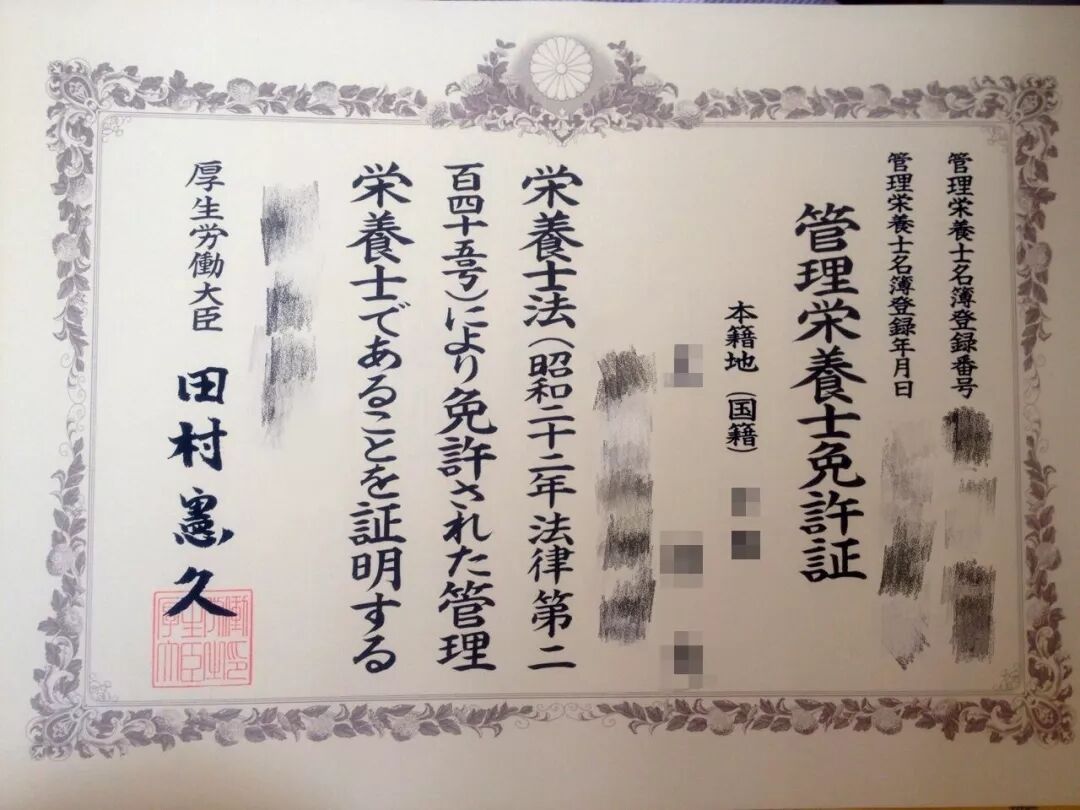 管理栄養士名簿登録番号
管理栄養士名簿登録年月日
管理栄養士免許証
本籍地（国籍）
栄養士法（昭和二十二年法律第二
百四十五号）により免許された管理
栄養士であることを証明する
厚生労働大臣 田村憲久